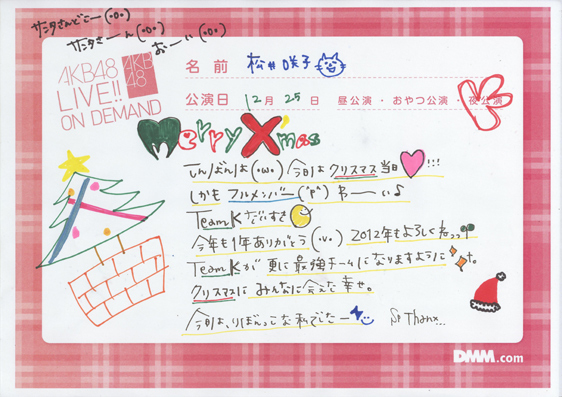 サンタさんどこー(・o・)
サンタさーん(・o・)
おーい(・o・)
AKB48
LIVE!!
ON DEMAND
AKB
48
名前 松井咲子
公演日 12月25日 昼公演・おやつ公演・夜公演
K
Merry X'mas
こんばんは(・ω・)今日はクリスマス当日!!!
しかもフルメンバー(°p°)わーーい♪
TeamKだいすき
今年も1年ありがとう(・v・)2012年もよろしくねっっ
TeamKが更に最強チームになりますように
クリスマスにみんなに会えて幸せ。
今日は、りぼんっこな私でしたー
Sp Thanx...
DMM.com